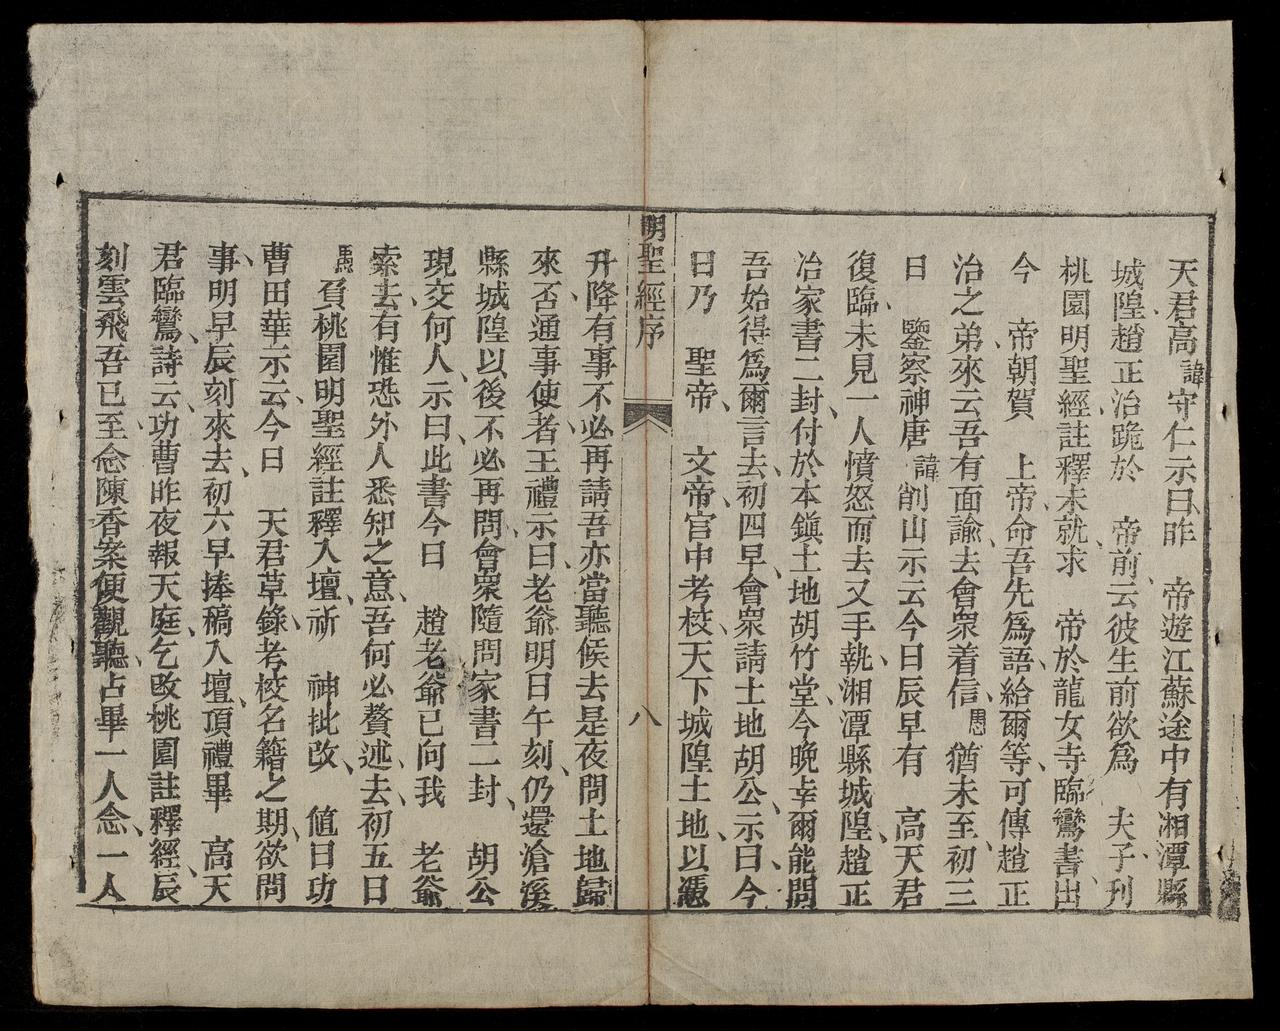 天君高諱守仁示曰昨　帝遊江蘇途中有湘潭縣
城隍趙正治跪於　帝前云彼生前欲爲　夫子刋
桃園明聖經註釋未就求　帝於龍女寺臨鸞書出
今　帝朝賀　上帝命吾先爲語給爾等可傳趙正
治之弟來云吾有面諭去會衆着信愚猶未至初三
日　鑒察神唐諱削山示云今日辰早有　高天君
復臨未見一人憤怒而去又手執湘潭縣城隍趙正
冶家書二封付於本鎭土地胡竹堂今晚幸爾能問
吾始得爲爾言去初四早會衆請土地胡公示曰今
日乃　聖帝　文帝宫中考校天下城隍土地以憑
明聖經序
八
升降有事不必再請吾亦當聽候去是夜問土地歸
來否通事使者王禮示曰老爺明日午刻仍還滄溪
縣城隍以後不必再問會衆隨問家書二封　胡公
現交何人示曰此書今日　趙老爺已向我　老爺
索去有惟恐外人悉知之意吾何必贅述去初五日
愚負桃園明聖經註釋入壇祈　神批改　值日功
曹田華示云今日　天君草錄考校名籍之期欲問
事明早辰刻來去初六早捧稿入壇頂禮畢　高天
君臨鸞詩云功曹昨夜報天庭乞改桃園註釋經辰
刻雲飛吾已至念陳香案便觀聽占畢一人念一人